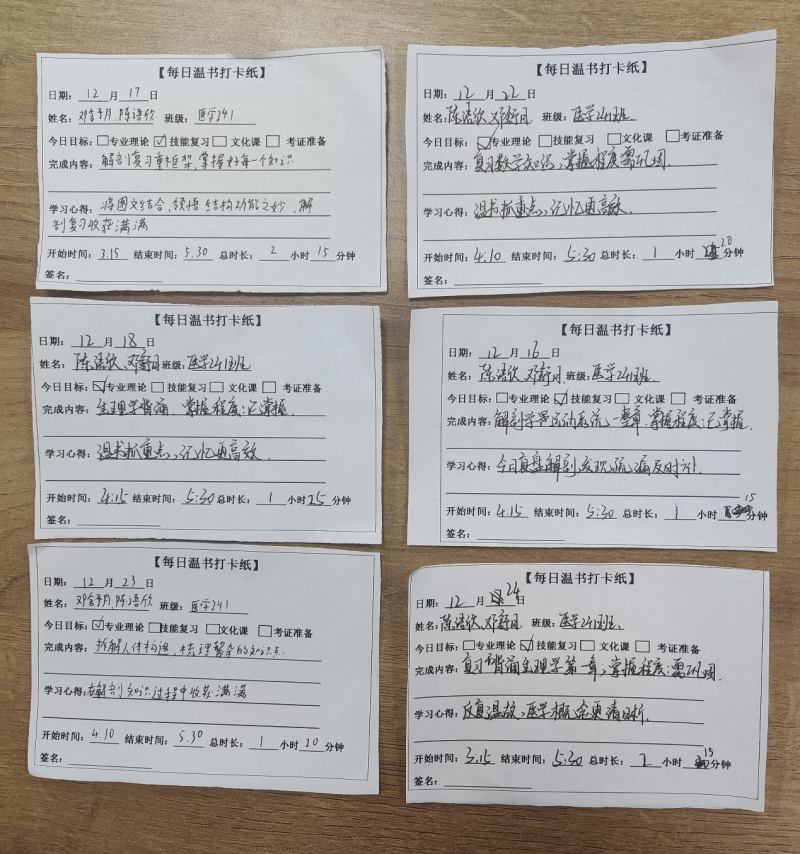 【每日温书打卡纸】
日期：12月17日
姓名：邓舒月、陈语欣 班级：医学241
今日目标：□专业理论 ☑技能复习 □文化课 □考证准备
完成内容：解剖复习重框架，掌握好每一个知识
学习心得：将图文结合，领悟结构功能之妙，解
剖复习收获满满
开始时间：3.15 结束时间：5.30 总时长：2小时15分钟
签名：
【每日温书打卡纸】
日期：12月22日
姓名：陈语欣、邓舒月 班级：医学241班
今日目标：☑专业理论 □技能复习 □文化课 □考证准备
完成内容：复习数学知识，掌握程度：需巩固
学习心得：温书抓重点，记忆更高效
开始时间：4:10 结束时间：5:30 总时长：1小时20分钟
签名：
【每日温书打卡纸】
日期：12月18日
姓名：陈语欣、邓舒月 班级：医学241班
今日目标：☑专业理论 □技能复习 □文化课 □考证准备
完成内容：生理学背诵、掌握程度：已掌握
学习心得：温书抓重点，记忆更高效
开始时间：4:15 结束时间：5:30 总时长：1小时25分钟
签名：
【每日温书打卡纸】
日期：12月16日
姓名：陈语欣、邓舒月 班级：医学241班
今日目标：□专业理论 ☑技能复习 □文化课 □考证准备
完成内容：解剖学运动系统一整章，掌握程度：已掌握
学习心得：今日复盘解剖，发现疏漏及时补
开始时间：4:15 结束时间：5:30 总时长：1小时15分钟
签名：
【每日温书打卡纸】
日期：12月23日
姓名：邓舒月、陈语欣 班级：医学241
今日目标：☑专业理论 □技能复习 □文化课 □考证准备
完成内容：拆解人体构造，梳理繁杂的知识点
学习心得：在解剖知识过程中收获满满
开始时间：4.10 结束时间：5.30 总时长：1小时20分钟
签名：
【每日温书打卡纸】
日期：12月24日
姓名：陈语欣、邓舒月 班级：医学241班
今日目标：□专业理论 ☑技能复习 □文化课 □考证准备
完成内容：复习背诵生理学第一章，掌握程度：需巩固
学习心得：反复温故，医学概念更清晰
开始时间：3:15 结束时间：5:30 总时长：2小时15分钟
签名：